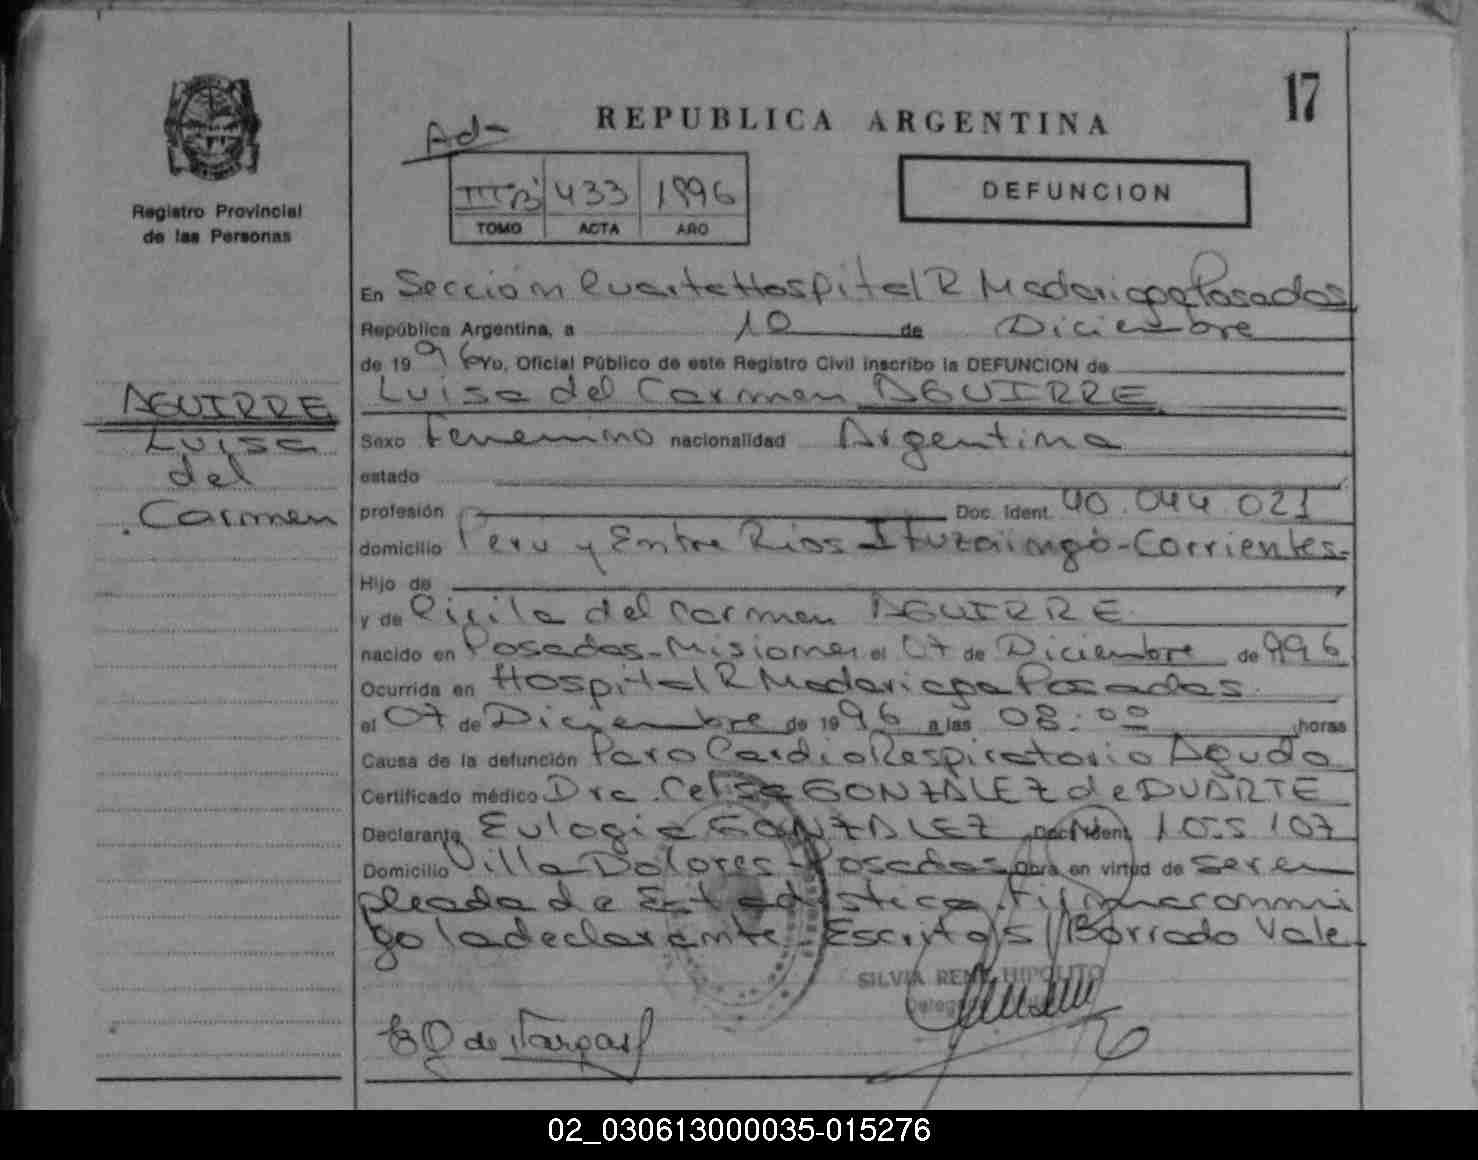 17
REPUBLICA ARGENTINA
Ad-
433 1996
TOMO ACTA AÑO
DEFUNCION
Registro Provincial
de las Personas
AGUIRRE
Luisa
del
Carmen
En Seccion Cuarta Hospital R Madariaga Posadas
República Argentina, a 10 de Diciembre
de 1996 yo, Oficial Público de este Registro Civil inscribo la DEFUNCION de
Luisa del Carmen AGUIRRE
Sexo Femenino nacionalidad Argentina
estado
profesión Doc. Ident. 40.044.021
domicilio Peru y Entre Rios Ituzaingó-Corrientes-
Hijo de
y de del Carmen AGUIRRE
nacido en Posadas-Misiones el 07 de Diciembre de 996
Ocurrida en Hospital R Madariaga Posadas
el 07 de Diciembre de 1996 a las 08:00 horas
Causa de la defunción Paro CardioRespiratorio Agudo
Certificado médico Dra. Celisa GONZALEZ de DUARTE
Declarante Eulogia GONZALEZ Doc. Ident. 1.055.107
Domicilio Villa Dolores-Posadas Obra en virtud de ser em
pleada de Estadistica, firma conmi
go la declarante Escrito s/ Borrado Vale
SILVIA RENE HIPOLITO
de Vargas
02_030613000035-015276